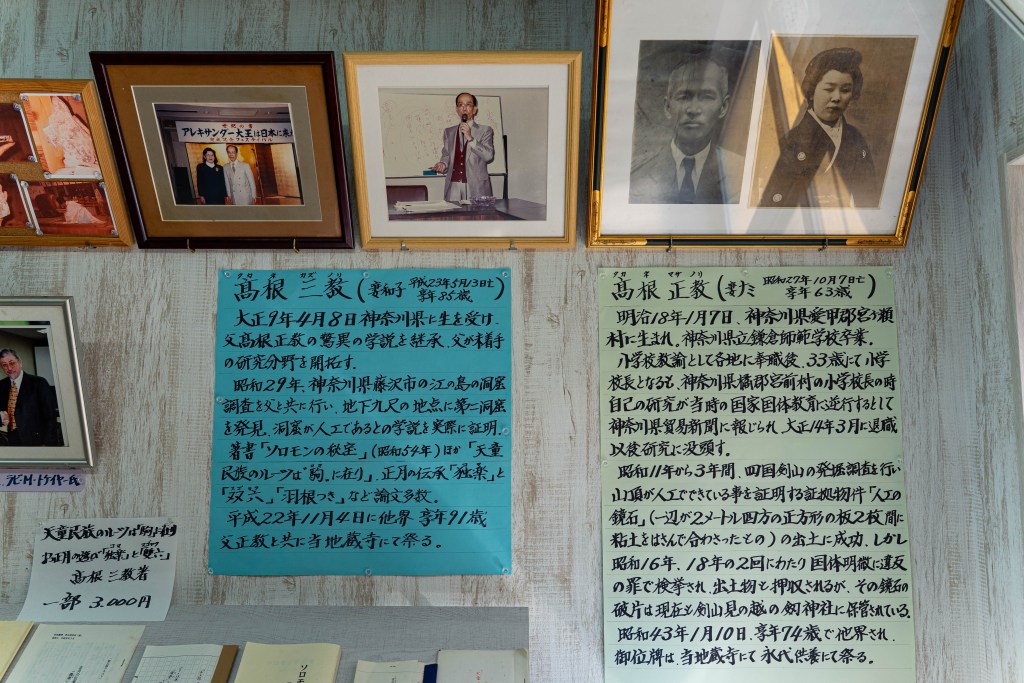 アレキサンダー大王は日本に来
タカ ネ カズ ノリ
髙根 三教 (妻和子 平成23年5月13日亡 享年85歳)
大正9年4月8日神奈川県に生を受け、
父髙根正教の驚異の学説を継承、父が未着手
の研究分野を開拓す。
昭和29年、神奈川県藤沢市の江の島の洞窟
調査を父と共に行い、地下九尺の地点に第二洞窟
を発見、洞窟が人工であるとの学説を実際に証明。
著書「ソロモンの秘宝」(昭和54年)ほか「天童
民族のルーツは"駒"に在り」、正月の伝承「独楽」と
「双六」、「羽根つき」など論文多数。
平成22年11月4日に他界 享年91歳
父正教と共に当地蔵寺にて祭る。
タカ ネ マサ ノリ
髙根 正教 (妻ナミ 昭和27年10月9日亡 享年63歳)
明治18年1月7日、神奈川県愛甲郡宮ヶ瀬
村に生まれ、神奈川県立鎌倉師範学校卒業。
小学校教諭として各地に奉職後、33歳にて小学
校長となるも、神奈川県橘郡宮前村の小学校長の時
自己の研究が当時の国家国体教育に逆行するとして
神奈川県貿易新聞に報じられ、大正14年3月に退職
以後研究に没頭す。
昭和11年から3年間、四国剣山の発掘調査を行い
山頂が人工でできている事を証明する証拠物件「人工の
鏡石」(一辺が2メートル四方の正方形の板2枚間に
粘土をはさんで合わさったもの)の出土に成功、しかし
昭和16年、18年の2回にわたり国体明徴に違反
の罪で検挙され、出土物も押収されるが、その鏡石の
破片は現在も剣山見の越の剱神社に保管されている。
昭和43年1月10日、享年74歳で他界され、
御位牌は当地蔵寺にて永代供養にて祭る。
ラビ・M・トケイヤー氏
天童民族のルーツは「駒」に在り
お正月の遊び「独楽」と「雙六」
髙根 三教著
一部 3.000円
ソロモ